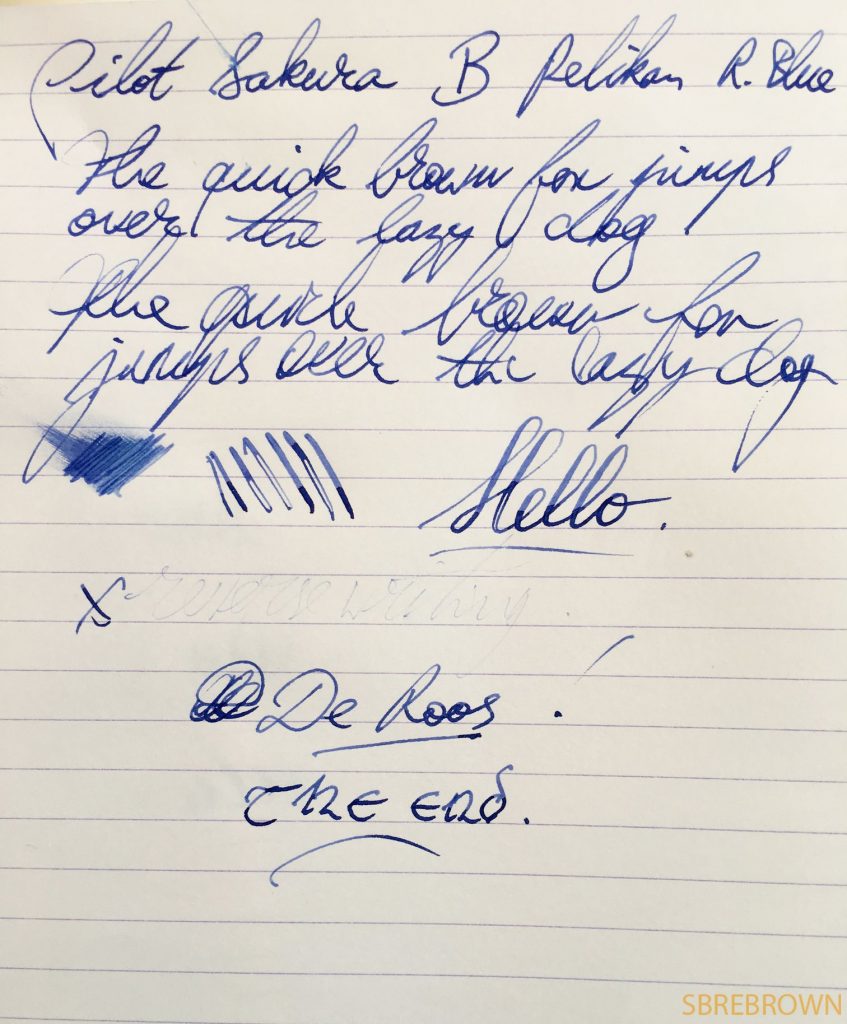 Pilot Sakura B Pelikan R. Blue
The quick brown fox jumps
over the lazy dog.
The quick brown fox
jumps over the lazy dog
Hello.
X reverse writing!
De Roos!
The end.
SBREBROWN